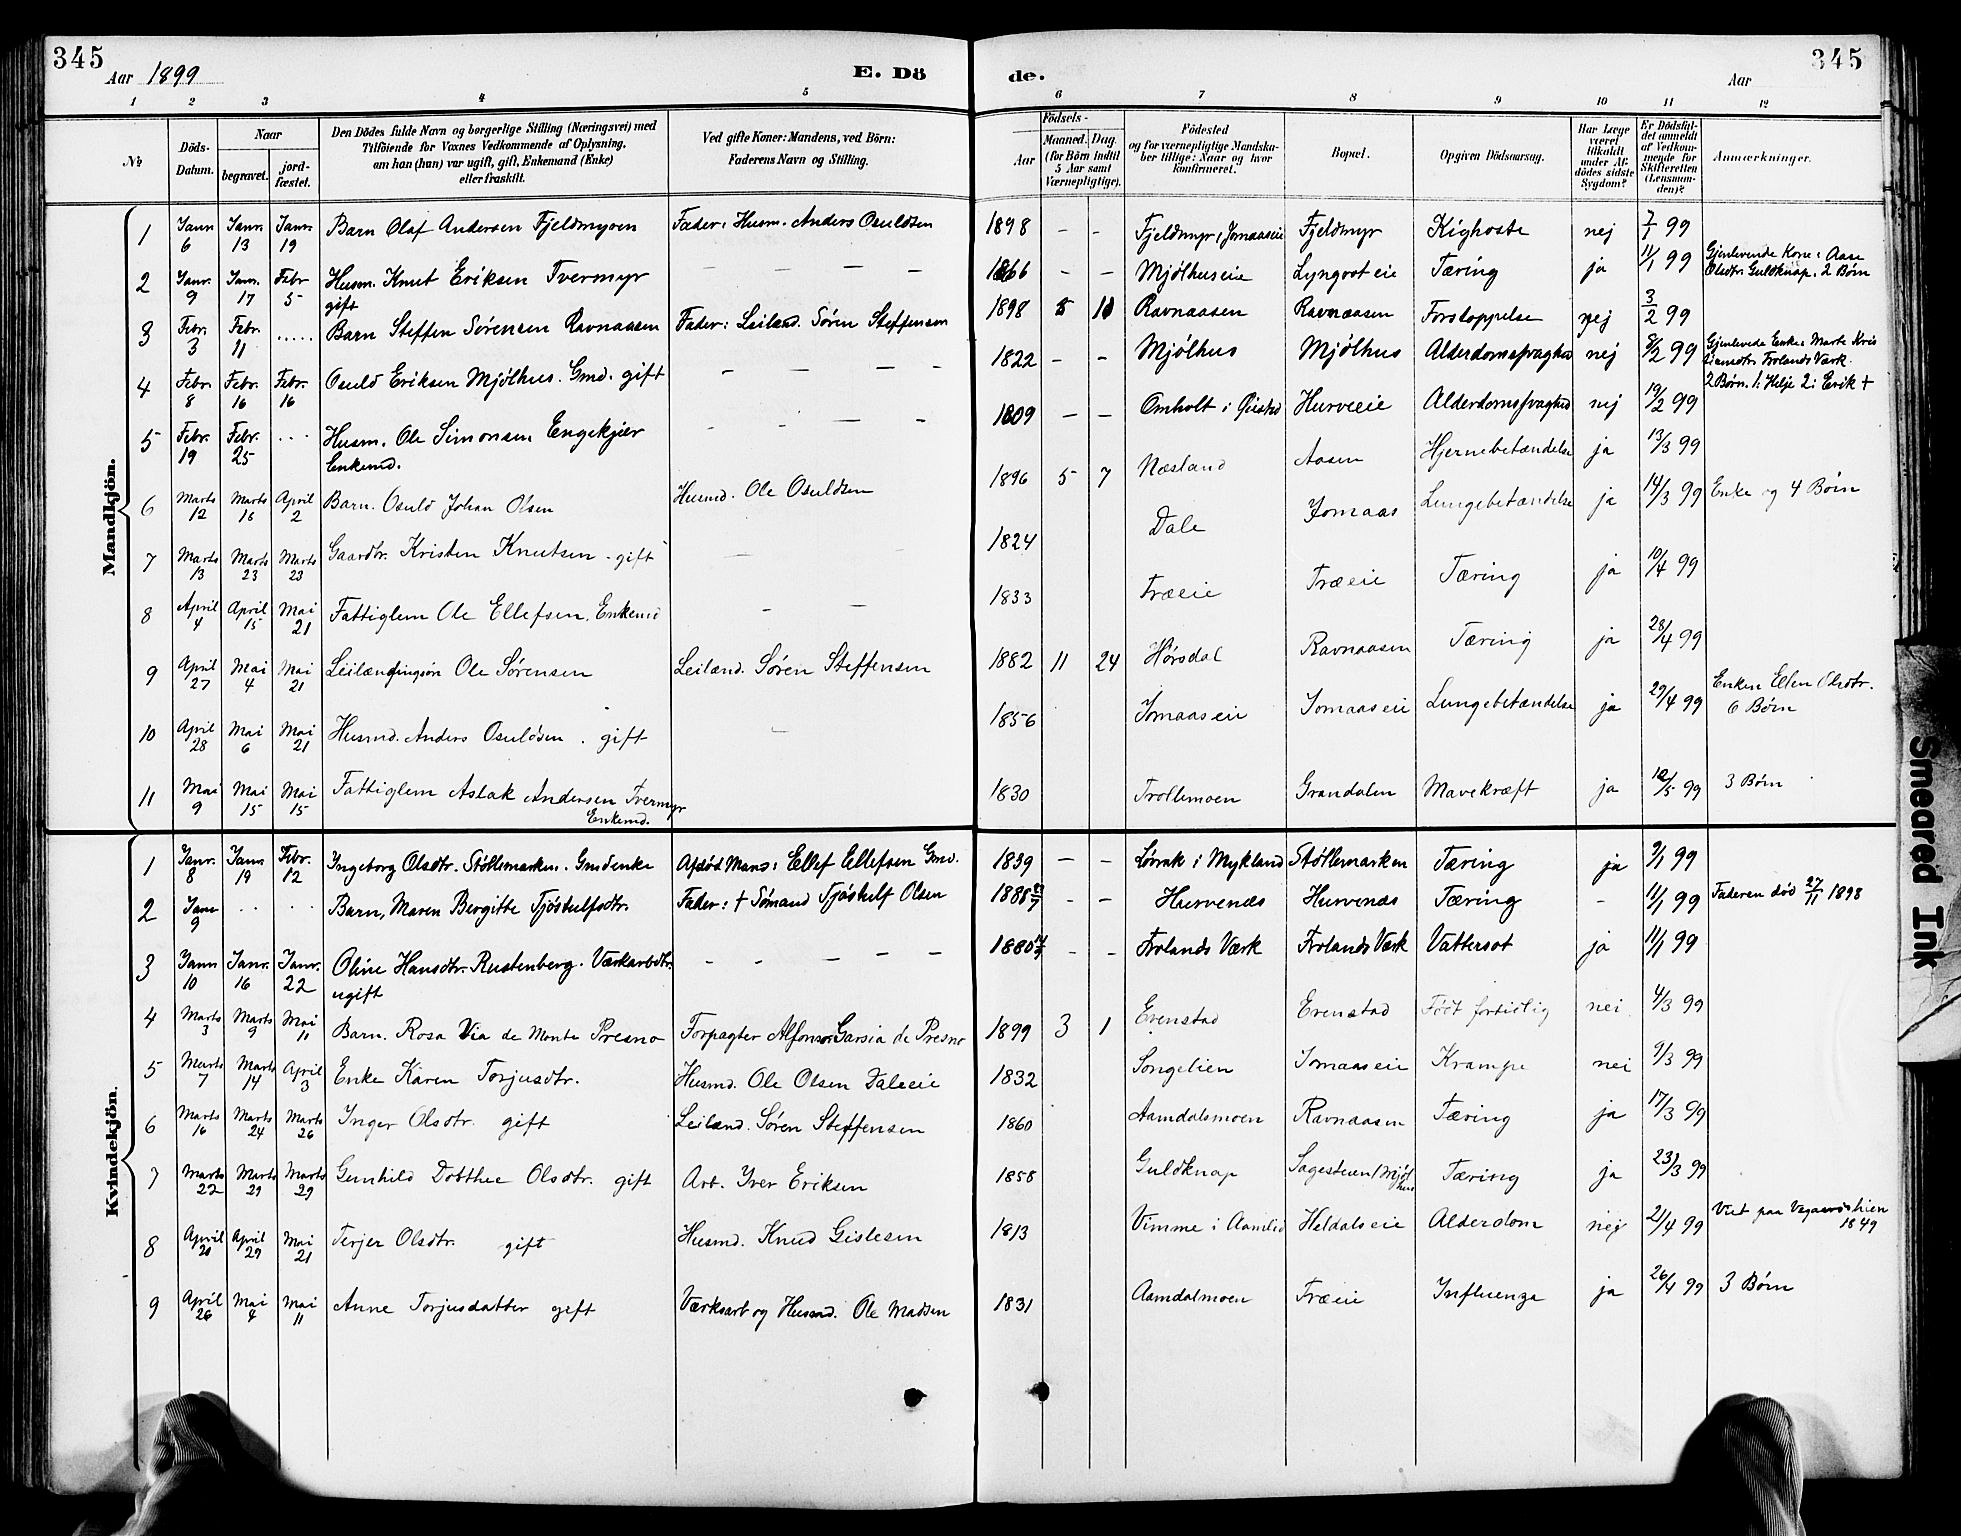 345
Aar 1899
E. Dö
de.
Aar
345
1 2 3 4 5 6 7 8 9 10 11 12
No
Döds-Datum.
Naar
begravet.
jord-fæstet.
Den Dödes fulde Navn og borgerlige Stilling (Næringsvei) med
Tilföiende for Voxnes Vedkommende af Oplysning,
om han (hun) var ugift, gift, Enkemand (Enke)
eller fraskilt.
Ved gifte Koner: Mandens, ved Börn:
Faderens Navn og Stilling.
Födsels-
Aar
Maaned. Dag.
(for Börn indtil
5 Aar samt
Værnepligtige).
Födested
og for værnepligtige Mandska-
ber tillige: Naar og hvor
konfirmeret.
Bopæl.
Opgiven Dödsaarsag.
Har Læge
været
tilkaldt
under Af-
dödes sidste
Sygdom?
Er Dödsfal-
det anmeldt
af Vedkom-
mende for
Skifteretten
(Lensman-
den)?
Anmærkninger.
Mandkjön.
1 Janr. 6 Janr. 13 Janr. 19 Barn Olaf Andersen Fjeldmyren Fader: Husm. Anders Osuldsen 1898 – – Fjeldmyr, Jomaaseie Fjeldmyr Kighoste nej 7/1 99
2 Janr. 9 Janr. 17 Febr 5 Husm. Knut Eriksen Tvermyr gift – – – – 1866 – – Mjølhuseie Lyngroteie Tæring ja 11/1 99 Gjenlevende Kone: Aase Olsdtr. Guldknap. 2 Børn
3 Febr. 3 Febr. 11 ..... Barn Steffen Sørensen Ravnaasen Fader: Leiland. Søren Steffensen 1898 5 10 Ravnaasen Ravnaasen Forstoppelse nej 3/2 99
4 Febr. 8 Febr. 16 Febr. 16 Osuld Eriksen Mjølhus. Gmd. gift – – – – 1822 – – Mjølhus Mjølhus Alderdomssvaghed nej 8/2 99 Gjenlevede Enke: Marte Kristiansdtr. Frolands Værk. 2 Børn. 1: Helje 2: Erik +
5 Febr. 19 Febr. 25 ... Husm. Ole Simonsen Engekjær Enkemd. – – – – 1809 – – Omholt i Øiestad Hurveeie Alderdomssvaghed nej 19/2 99
6 Marts 12 Marts 16 April 2 Barn. Osuld Johan Olsen Husmd. Ole Osuldsen 1896 5 7 Næsland Aasen Hjernebetændelse ja 13/3 99
7 Marts 13 Marts 23 Marts 23 Gaardbr. Kristen Knutsen - gift – – 1824 Dale Jomaas Lungebetændelse ja 14/3 99 Enke og 4 Børn
8 April 4 April 15 Mai 21 Fattiglem Ole Ellefsen. Enkemd – – 1833 Træeie Træeie Tæring ja 10/4 99
9 April 27 Mai 4 Mai 21 Leilændingsøn Ole Sørensen Leiland. Søren Steffensen 1882 11 24 Hørsdal Ravnaasen Tæring ja 28/4 99
10 April 28 Mai 6 Mai 21 Husmd. Anders Osuldsen. gift – 1856 Jomaaseie Jomaaseie Lungebetændelse ja 29/4 99 Enken Ellen Olsdtr. 6 Børn
11 Mai 9 Mai 15 Mai 15 Fattiglem Aslak Andersen Tvermyr Enkemd. 1830 Trollemoen Grandalen Mavekræft ja 10/5 99 3 Børn
Kvindekjön.
1 Janr. 8 Janr. 19 Febr. 12 Ingeborg Olsdtr. Støllemarken. Gmdenke Afdød Mand: Ellef Ellefsen Gmd. 1839 – – Løvrak i Mykland Støllemarken Tæring ja 9/1 99
2 Janr 9 . . . Barn, Maren Bergitte Tjøstulfsdtr. Fader: + Sømand Tjøstulf Olsen 1888 – – Hurvenæs Hurvenæs Tæring – 11/1 99 Faderen død 27/11 1898
3 Janr 10 Janr. 16 Janr. 22 Oline Hansdtr. Rustenberg. Værkarbdtr. ugift – – – – – 1880 – – Frolands Værk Frolands Værk Vattersot ja 11/1 99
4 Marts 3 Marts 9 Mai 11 Barn. Rosa Via de Monte Presno Forpagter Alfonso Garsia de Presno 1899 3 1 Evenstad Evenstad Født fortidlig nei 4/3 99
5 Marts 7 Marts 14 April 3 Enke Karen Torjusdtr. Husmd. Ole Olsen Daleeie 1832 Songelien Jomaaseie Krampe nei 9/3 99
6 Marts 16 Marts 24 Marts 26 Inger Olsdtr. gift Leiland. Søren Steffensen 1860 Aamdalsmoen Ravnaasen Tæring ja 17/3 99
7 Marts 22 Marts 29 Marts 29 Gunhild Dotthee Olsdtr. gift Arb. Iver Eriksen 1858 Guldknap Sagesteen/Mjølhus Tæring ja 23/3 99
8 April 20 April 29 Mai 21 Terjer Olsdtr. gift Husmd. Knud Gislesen 1813 Vimme i Aamlid Heldalseie Alderdom nej 21/4 99 Viet paa 1849
9 April 26 Mai 4 Mai 11 Anne Torjusdatter gift Værksarb og Husmd. Ole Madsen 1831 Aamdalmoen Træeie Influenza ja 26/4 99 3 Børn
Smeared Ink